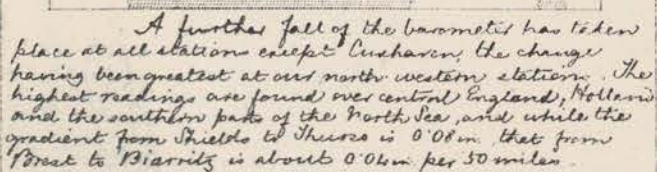 A further fall of the barometer has taken
place at all stations except Cuxhaven, the change
having been greatest at our north western stations. The
highest readings are found over central England, Holland
and the southern parts of the North Sea, and while the
gradient from Shields to Thurso is 0.08in. that from
Brest to Biarritz is about 0.04in per 50 miles.